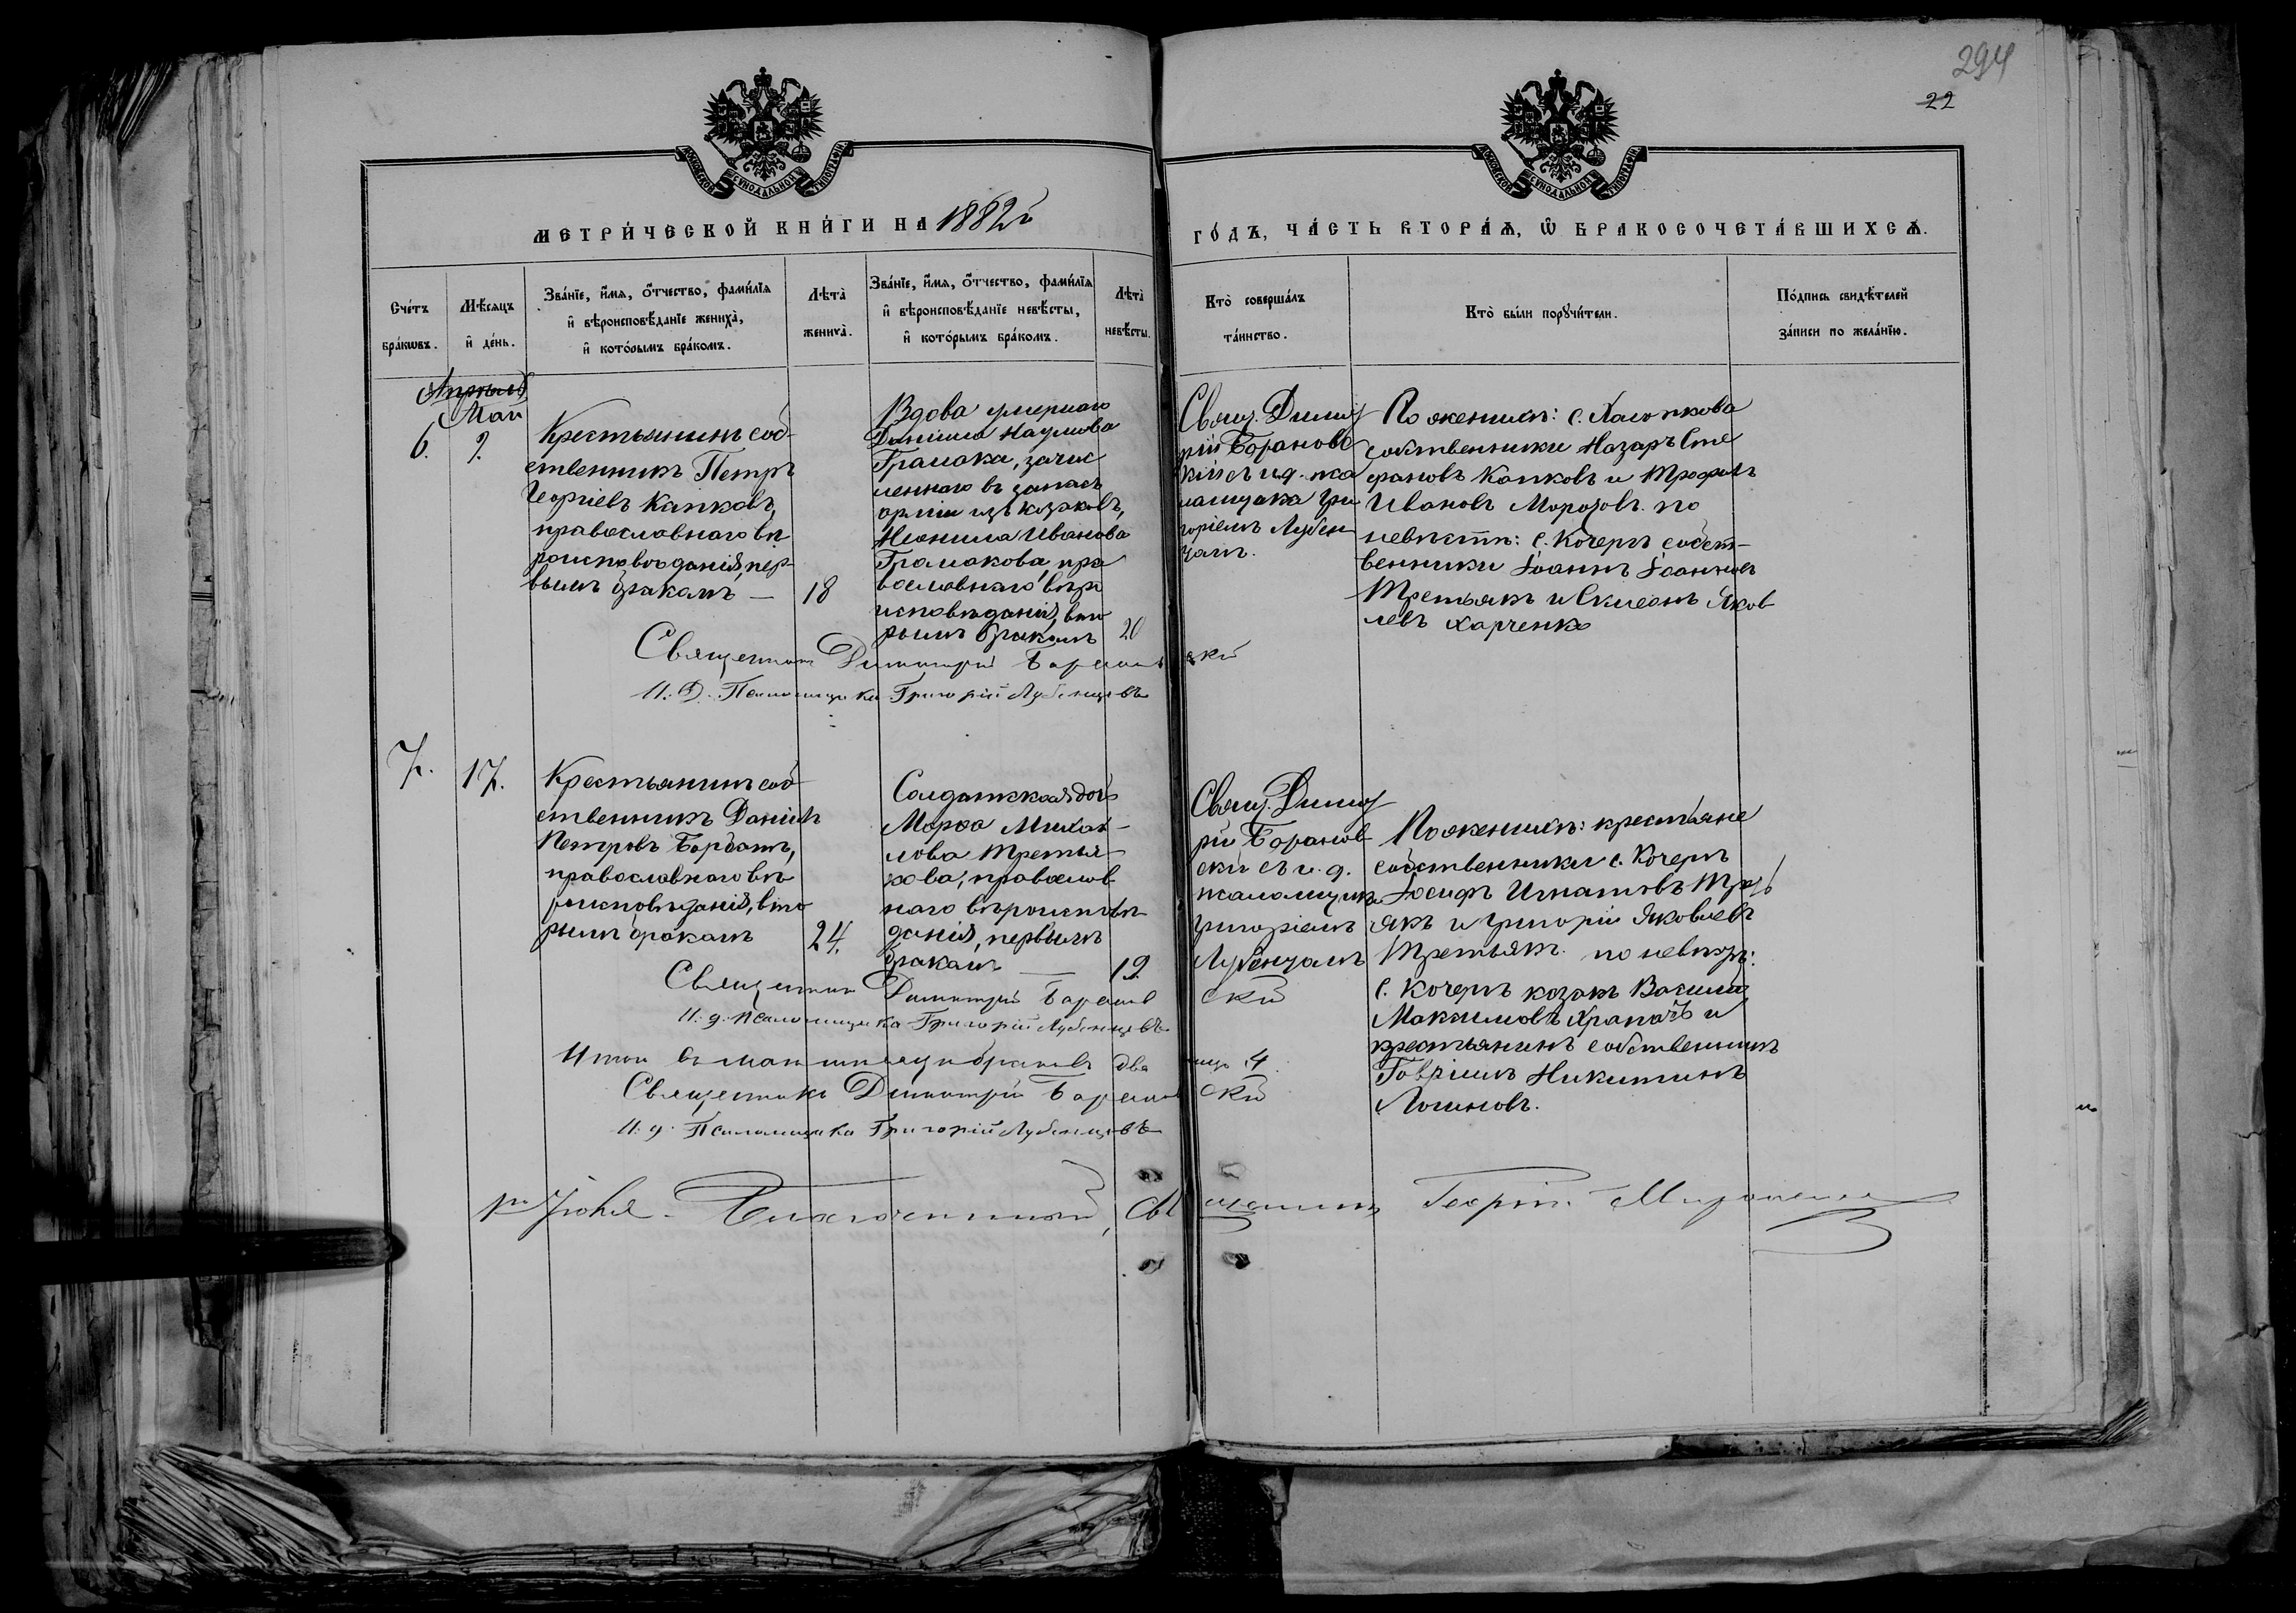 294
22
МОСКОВСКОЙ СѴНОДАЛЬНОЙ ТИПОГРАФІИ
МОСКОВСКОЙ СѴНОДАЛЬНОЙ ТИПОГРАФІИ
МЕТРИ́ЧЕСКОЙ КНИ́ГИ НА 1882й
ГО́ДЪ, ЧА́СТЬ ВТОРА́Ѧ, Ѽ БРАКОСОЧЕТА́ВШИХСѦ.
Сче́тъ
бра́кωвъ.
Мѣ́сѧцъ
и҆ де́нь.
Зва́нїе, и҆́мѧ, ѻ҆́тчество, фами́лїѧ
и҆ вѣроисповѣ́данїе жениха̀,
и҆ кото́рымъ бра́комъ.
Лѣта̀
жениха̀.
Зва́нїе, и҆́мѧ, ѻ҆́тчество, фами́лїѧ
и҆ вѣроисповѣ́данїе невѣ́сты,
и҆ кото́рымъ бра́комъ.
Лѣта̀
невѣ́сты.
Кто̀ соверша́лъ
та́инство.
Кто̀ бы́ли порꙋчи́тели.
По́дпись свидѣ́телей
за́писи по жела́нїю.
Апрель
Май
6.
9.
Крестьянинъ соб-
ственникъ Петръ
Георгіевъ Капковъ,
православнаго вѣ
роисповѣданія, пер-
вымъ бракомъ —
18
Вдова умершаго
Даніила Наумова
Грамака, зачис
леннаго въ запасъ
арміи изъ козаковъ,
Неонила Иванова
Грамакова, пра
вославнаго вѣро
исповѣданія, вто
рымъ бракомъ
20
Свящ. Дими
трій Барановс
кій съ и.д. пса
ломщика Гри
горіемъ Лубен
цомъ.
По женихѣ: с.
собственники Назаръ Сте
фановъ Капковъ и Трофимъ
Ивановъ Морозовъ. по
невѣстѣ: с. Кочеръ собст-
венники Іоаннъ Іоанновъ
Третьякъ и Симеонъ Яков
левъ Харченко
Священникъ Димитрій Барановскій
И. Д. Псаломщика Григорій Лубенцовъ
7.
17.
Крестьянинъ соб
ственникъ Даніилъ
Петровъ Бардакъ,
православнаго вѣ
роисповѣданія, вто
рымъ бракомъ
24.
Солдатская дочь
Марѳа Михаи-
лова Третья
кова, православ
наго вѣроисповѣ
данія, первымъ
бракомъ —
19.
Свящ. Дими
трій Баранов
скій съ и. д.
псаломщика
Григоріемъ
Лубенцомъ
По женихѣ: крестьяне
собственники с. Кочеръ
Іосифъ Игнатовъ Треть
якъ и Григорій Яковлевъ
Третьякъ. по невѣстѣ:
с. Кочеръ козакъ Василій
Максимовъ Храпачъ и
крестьянинъ собственникъ
Гавріилъ Никитинъ
Логиновъ.
Священникъ Димитрій Барановскій
И. д. псаломщика Григорій Лубенцовъ
Итого въ маѣ мѣсяцѣ браковъ два
Священникъ Димитрій Барановскій
И. д. Псаломщика Григорій Лубенцовъ
Іюня. Благочинный, Священникъ Георгій